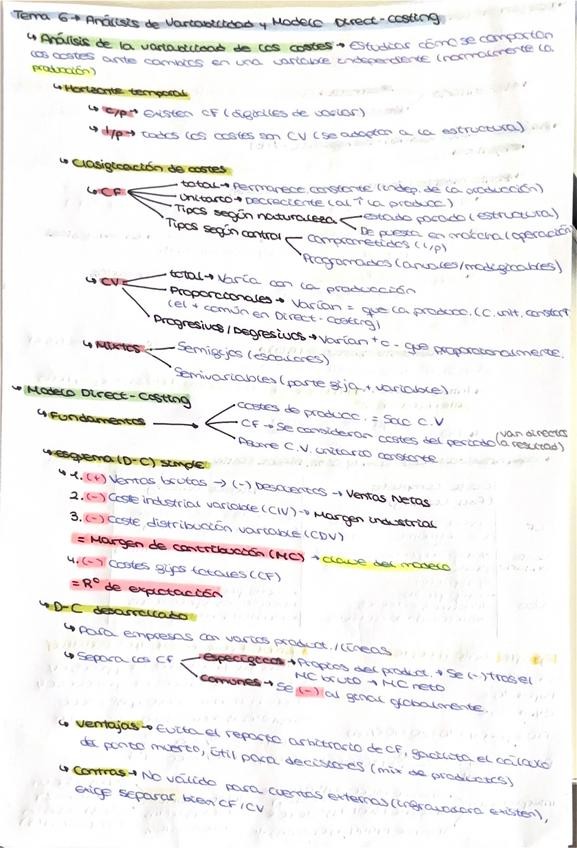 Tema 6 → Análisis de Variabilidad y Modelo Direct-costing
↳ Análisis de la variabilidad de los costes → Estudiar cómo se comportan
los costes ante cambios en una variable independiente (normalmente la
producción)
↳ Horizonte temporal
↳ c/p → Existen CF (difíciles de variar)
↳ l/p → todos los costes son CV (se adaptan a la estructura)
↳ Clasificación de costes
↳ CF
total → Permanece constante (indep. de la producción)
Unitario → Decreciente (al ↑ la produc.)
Tipos según naturaleza
estado parado (estructura)
De puesta en marcha (operación)
Tipos según control
comprometidos (l/p)
Programados (anuales/modificables)
↳ CV
total → Varía con la producción
Proporcionales → Varían = que la produc. (C. unit. constant
(el + común en Direct-costing)
Progresivos / Degresivos → Varían + o - que proporcionalmente.
↳ Mixtos
Semifijos (escalones)
Semivariables (parte fija + variable)
↳ Modelo Direct-Costing
↳ Fundamentos →
costes de produc. = Solo C.V
CF → Se consideran costes del período (van directos a resultad)
Asume C.V. unitario constante
↳ esquema (D-C) simple:
↳ 1. (+) Ventas brutas → (-) Descuentos → Ventas Netas
2. (-) Coste industrial variable (CIV) → Margen industrial
3. (-) Coste distribución variable (CDV)
= Margen de contribución (MC) → clave del modelo
4. (-) Costes fijos totales (CF)
= Rº de explotación
↳ D-C desarrollado
↳ Para empresas con varios product. / líneas
↳ Separa los CF
específicos → Propios del product. → Se (-) tras el
MC bruto → MC neto
comunes → Se (-) al final globalmente.
↳ Ventajas → Evita el reparto arbitrario de CF, facilita el cálculo
del punto muerto, útil para decisiones (mix de productos)
↳ Contras → No válido para cuentas externas (infravalora existen),
exige separar bien CF/CV